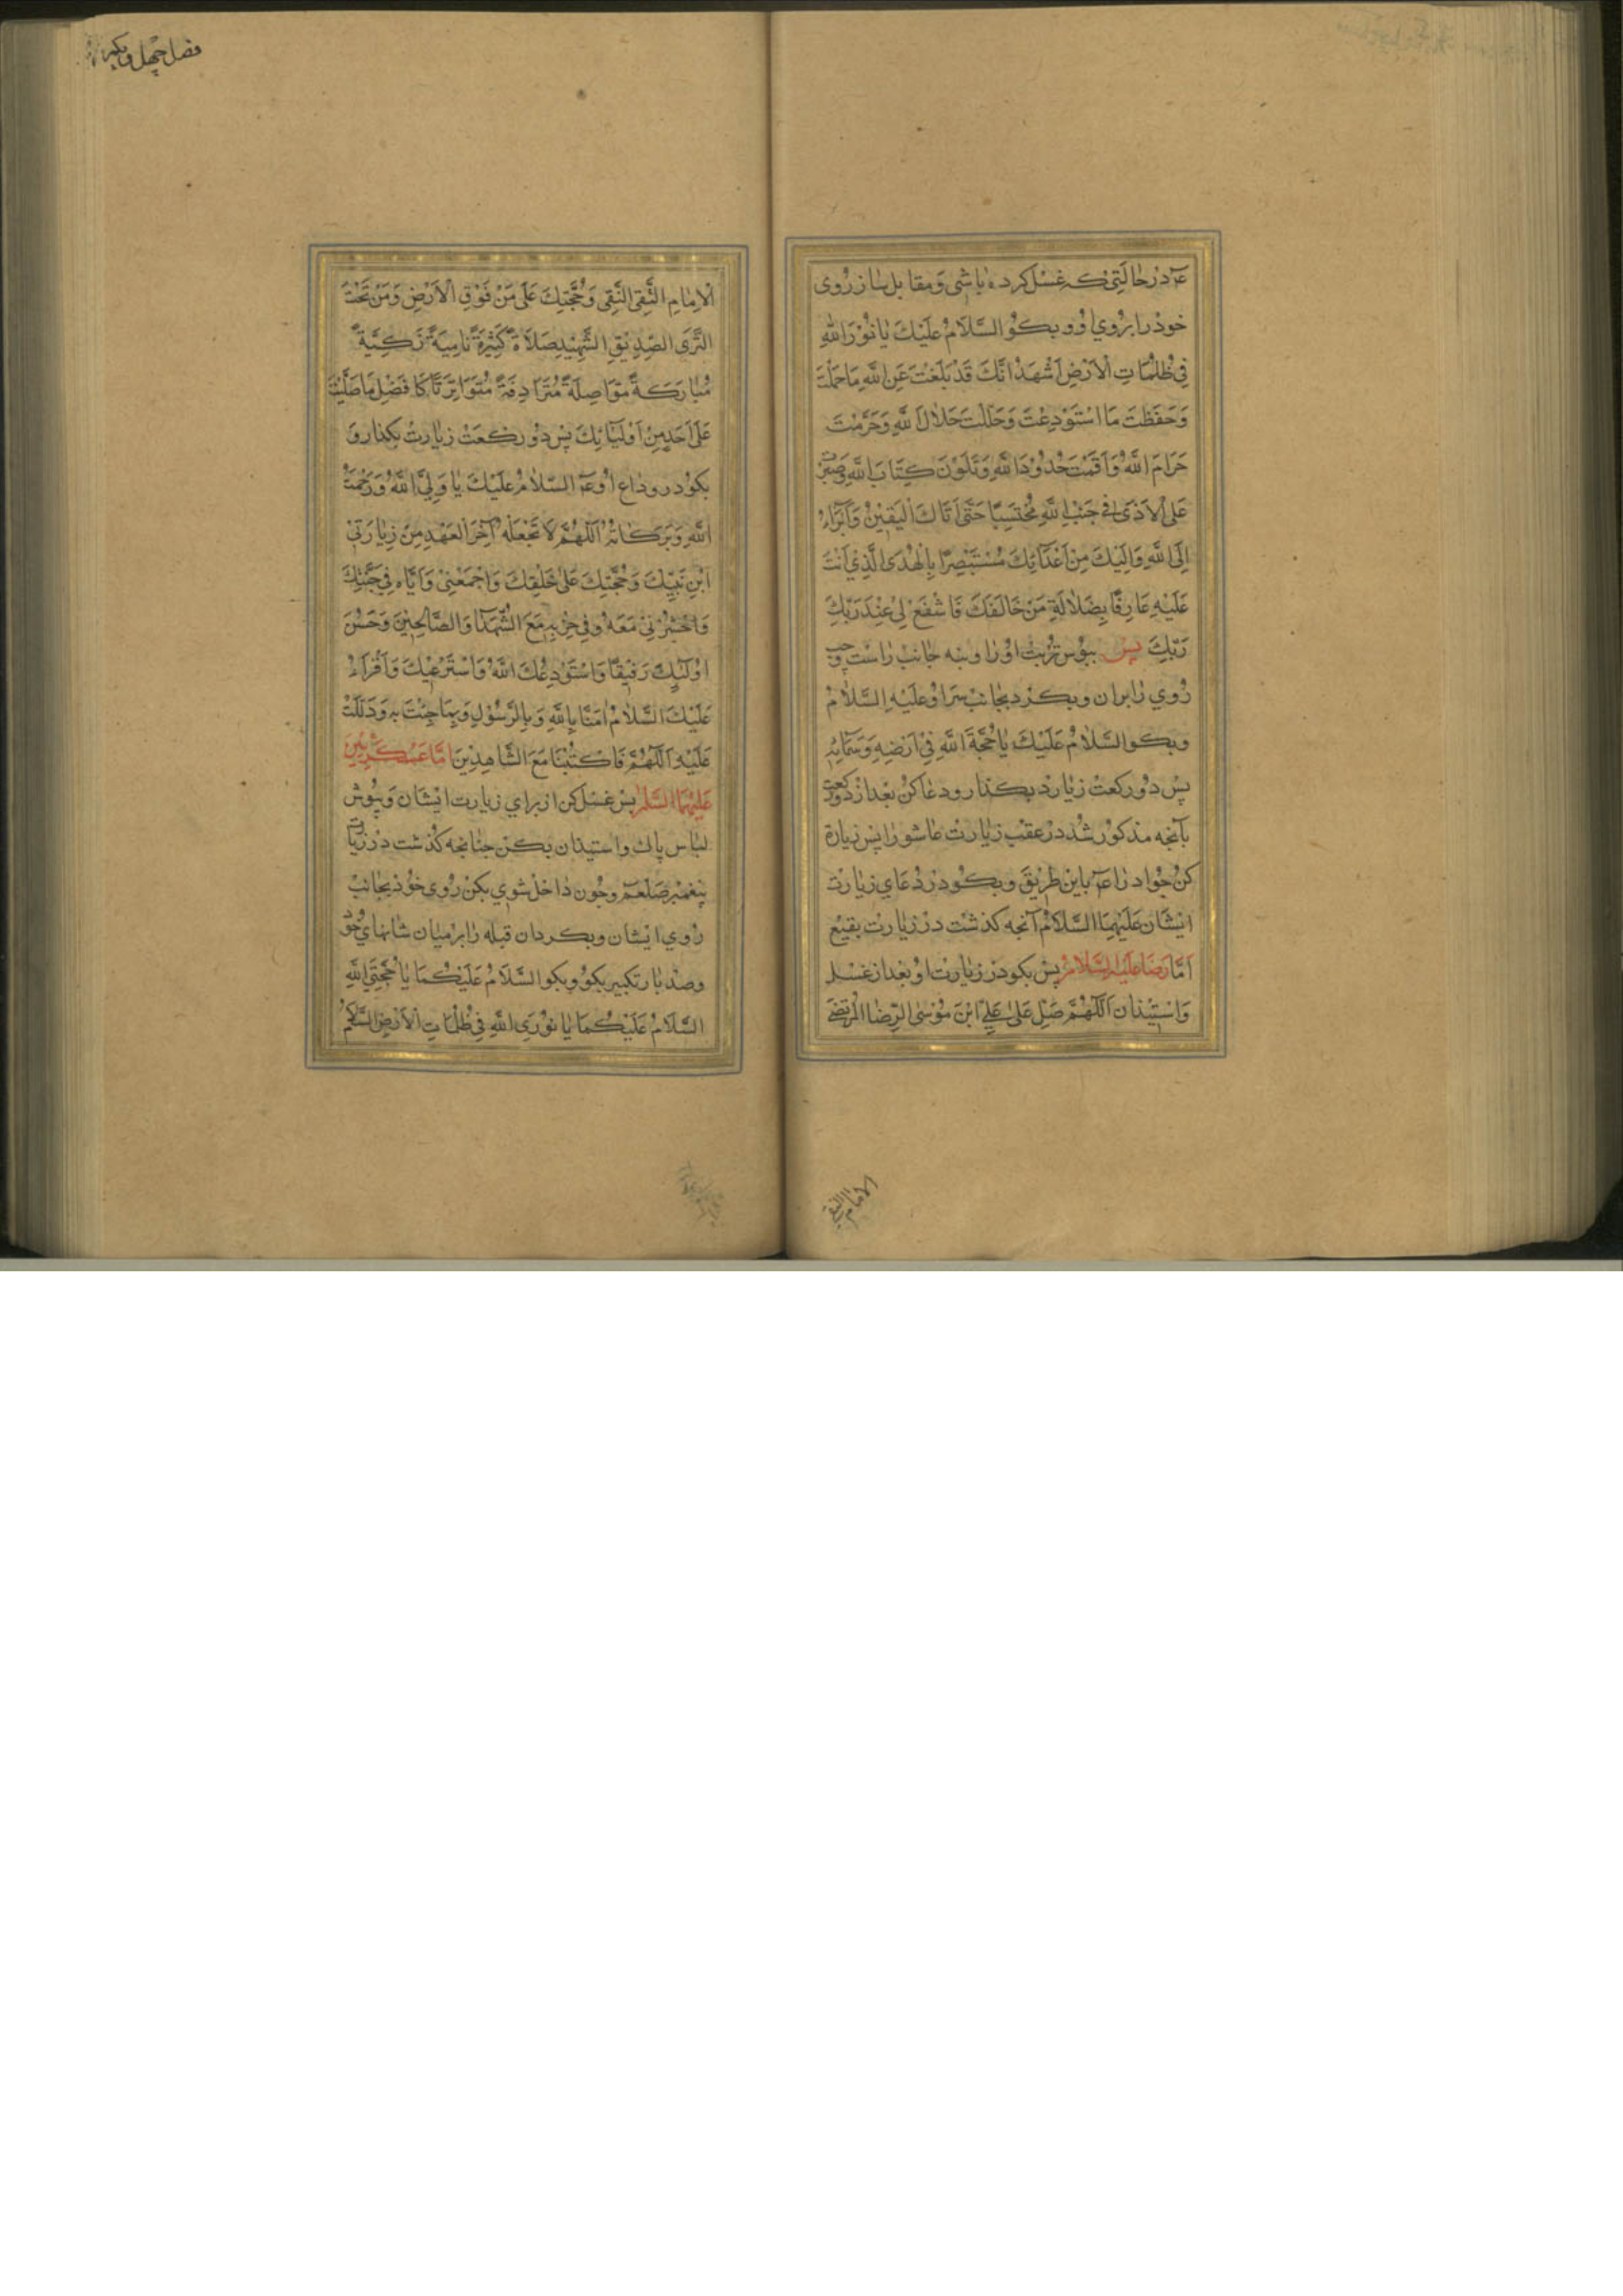 عٓ درحالتی که غسل کرده باشی و مقابل ساز روی
خود را بروي او و بکو السَّلَامُ عَلَيْكَ يَا نُوْرَ اللهِ
فِي ظُلُمَاتِ الْاَرْضِ اَشْهَدُ اَنَّكَ قَدْ بَلَّغْتَ عَنِ اللَّهِ مَا حُمِّلْتَ
وَحَفَظْتَ مَا اسْتَوْدِعْتَ وَحَلَّلْتَ حَلَالَ اللَّهِ وَحَرَّمْتَ
حَرَامَ اللَّهِ وَاَقَمْتَ حُدُوْدَ اللَّهِ وَتَلَوْتَ كِتَابَ اللَّهِ وَصَبَرْتَ
عَلَى الْاَذَى فِي جَنْبِ اللَّهِ مُحْتَسِبًا حَتَّى اَتَاكَ الْيَقِيْنُ وَاَبْرَاءُ
اِلَى اللَّهِ وَاِلَيْكَ مِنْ اَعْدَآئِكَ مُسْتَبْصِرًا بِالْهُدَى الَّذِي اَنْتَ
عَلَيْهِ عَارِفًا بِضَلَالَةِ مَنْ خَالَفَكَ فَاشْفَعْ لِيْ عِنْدَ رَبِّكَ
رَبِّكَ پس ببوس تربت او را و بنه جانب راست و چپ
روي را بران و بکرد بجانب سر او عَلَيْهِ السَّلَامُ
و بکو السَّلَامُ عَلَيْكَ يَا حُجَّةَ اللَّهِ فِيْ اَرْضِهِ وَسَمَآئِهِ
پس دو رکعت زیارد بکذار و دعا کن بعد از دو رکعت
بآنجه مذکور شد در عقب زیارت عاشورا پس زیارة
کن جواد را عٓ باین طریق و بکو در دعاي زیارت
ایشان عَلَيْهِمَا السَّلَامُ آنجه کذشت در زیارت بقیع
اَمَّا رِضَا عَلَيْهِ السَّلَامُ پس بکو در زیارت او بعد از غسل
وَاسْتِيْذَان اَللّٰهُمَّ صَلِّ عَلَى عَلِيِّ ابْنَ مُوْسَى الرِّضَا الْمُرْتَضَى
الامام التقی
فصل چهل و یکم
الْاِمَامِ التَّقِى النَّقِى وَحُجَّتِكَ عَلَى مَنْ فَوْقِ الْاَرْضِ وَمَنْ تَحْتَ
الثَّرَى الصِّدِيْقِ الشَّهِيْدِ صَلَاةً كَثِيْرَةً نَامِيَةً زَكِيَّةً
مُبَارَكَةً مُتَوَاصِلَةً مُتَرَادِفَةً مُتَوَاتِرَتًا كَاَفْضَلِ مَا صَلَّيْتَ
عَلَى اَحَدٍ مِنْ اَوْلِيَآئِكَ پس دو رکعت زیارت بکذار و
بکو در وداع او عٓ السَّلَامُ عَلَيْكَ يَا وَلِيَّ اللَّهِ وَرَحْمَةُ
اللَّهِ وَبَرَكَاتُهُ اَللّٰهُمَّ لَا تَجْعَلْهُ آخِرَ الْعَهْدِ مِنْ زِيَارَتِيْ
ابْنِ نَبِيِّكَ وَحُجَّتِكَ عَلَى خَلْقِكَ وَاجْمَعْنِيْ وَاِيَّاهُ فِيْ جَنَّتِكَ
وَاحْشُرْنِيْ مَعَهُ وَفِي حِزْبِهِ مَعَ الشُّهَدَآءِ وَالصَّالِحِيْنَ وَحَسُنَ
اُوْلَئِكَ رَفِيْقًا وَاسْتَوْدِعُكَ اللَّهَ وَاسْتَرْعِيْكَ وَاَقْرَاءُ
عَلَيْكَ السَّلَامُ اَمَنَّا بِاللَّهِ وَبِالرَّسُوْلِ وَبِمَا جِئْتَ بِهِ وَدَلَلْتَ
عَلَيْهِ اَللّٰهُمَّ فَاكْتُبْنَا مَعَ الشَّاهِدِيْنَ اَمَّا عَسْكَرِيَّيْنِ
عَلَيْهِمَا السَّلَم پس غسل کن از براي زیارت ایشان و بپوش
لباس پاك و استیذان بکن جنانجه کذشت در زیارت
پیغمبر صلعم و جون داخل شوي بکن روي خود بجانب
روي ایشان و بکردان قبله را بر میان شانهاي خود
و صد بار تکبیر بکو و بکو السَّلَامُ عَلَيْكُمَا يَا حُجَّتَيِ اللَّهِ
السَّلَامُ عَلَيْكُمَا يَا نُوْرَيِ اللَّهِ فِي ظُلُمَاتِ الْاَرْضِ السَّلَامُ